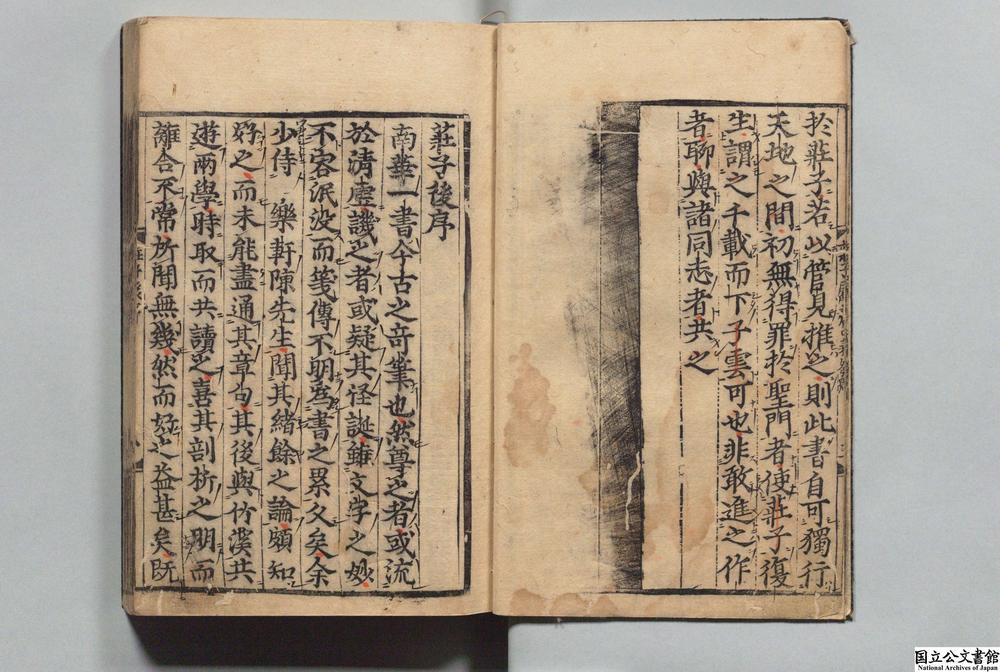 於莊子若以管見推之則此書自可獨行
天地之間初無得罪於聖門者使莊子復
生謂之千載而下子雲可也非敢進之作
者聊與諸同志者共之
莊子後序
南華一書今古之奇筆也然尊之者或流
於清虛譏之者或疑其怪誕雖文字之妙
不容泯没而箋傳不明為書之累久矣余
少侍 樂軒陳先生聞其緒餘之論頗知
好之而未能盡通其章句其後與竹溪共
遊兩學時取而共讀之喜其剖析之明而
離合不常所聞無幾然而好之益甚矣既
国立公文書館
National Archives of Japan